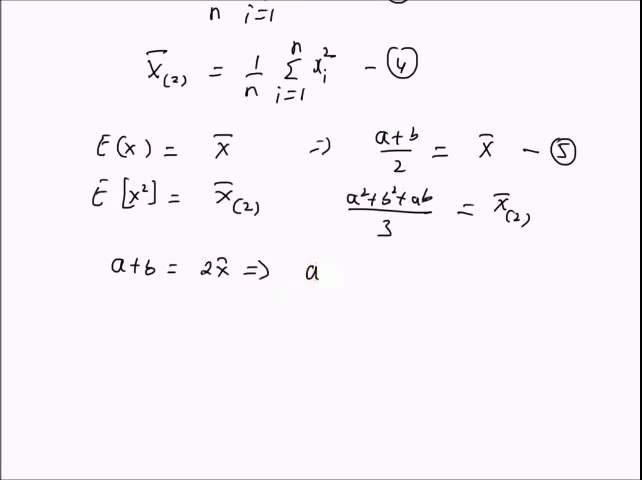 n i=1
x̄(2) = 1/n Σ(i=1)^n xᵢ² - ④
E(x) = x̄ => (a+b)/2 = x̄ - ⑤
E[x²] = x̄(2) (a²+b²+ab)/3 = x̄(2)
a+b = 2x̄ => a